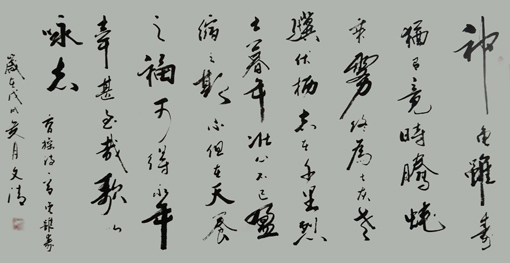 神龜雖壽
猶有竟時騰蛇
乘霧終為土灰老
驥伏櫪志在千里烈
士暮年壯心不已盈
縮之期不但在天養
之福可得永年
幸甚至哉歌以
咏志
曹操詩一首龜雖壽
歲在戊戌月文清